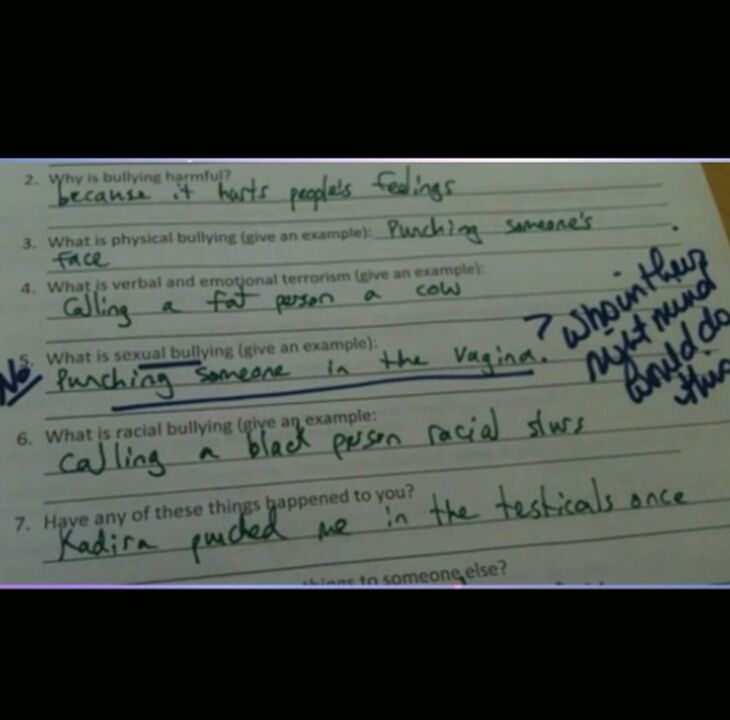 2. Why is bullying harmful?
because it hurts people's feelings
3. What is physical bullying (give an example): Punching someone's
face
4. What is verbal and emotional terrorism (give an example):
Calling a fat person a cow
5. What is sexual bullying (give an example):
No Punching someone in the vagina.
? who in their
right mind
would do
this
6. What is racial bullying (give an example:
Calling a black person racial slurs
7. Have any of these things happened to you?
Kadira punched me in the testicals once
things to someone else?